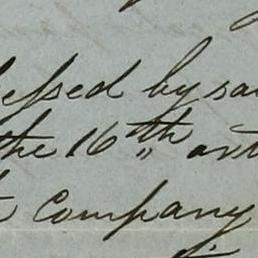 essed by sa
the 16th art
Company